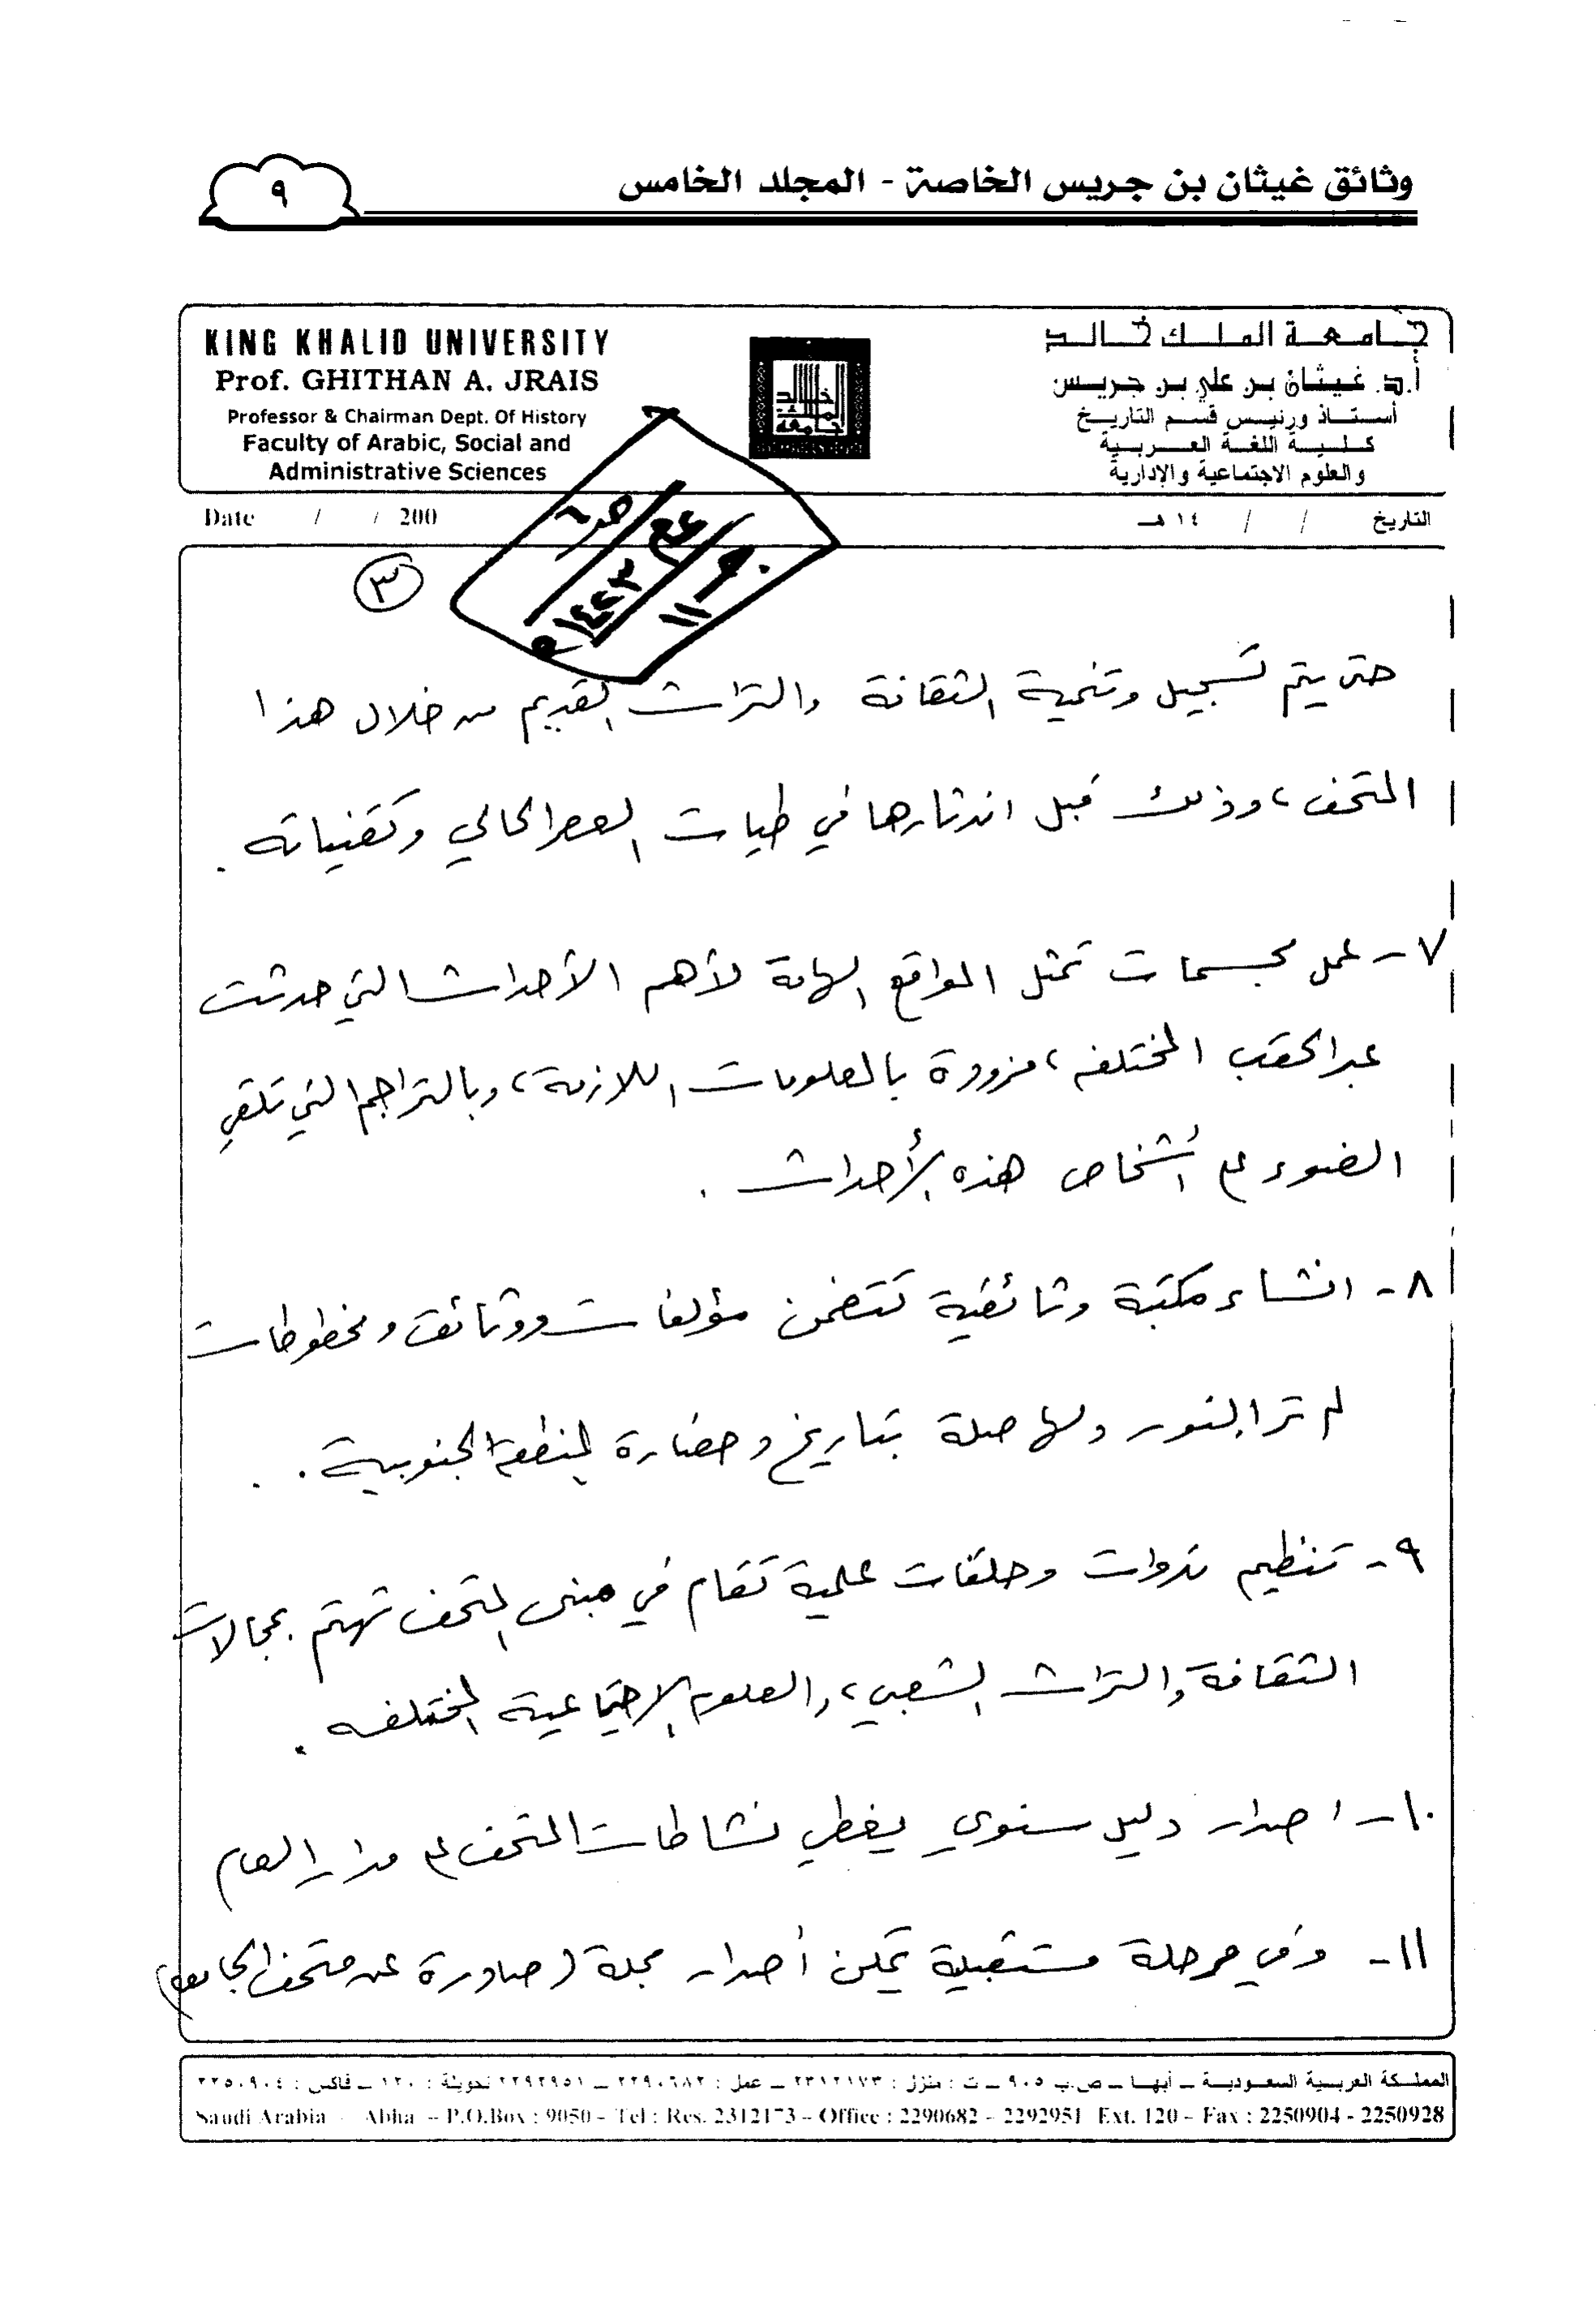 وثائق غيثان بن جريس الخاصة - المجلد الخامس
٩
جامعة الملك خالد
أ.د. غيثان بن علي بن جريس
أستاذ ورئيس قسم التاريخ
كلية اللغة العربية
والعلوم الاجتماعية والإدارية
KING KHALID UNIVERSITY
Prof. GHITHAN A. JRAIS
Professor & Chairman Dept. Of History
Faculty of Arabic, Social and
Administrative Sciences
جامعة الملك خالد
التاريخ / / ١٤ هـ
Date / / 200
١٤٤٣هـ
١١
٣
حتى يتم تسجيل وتنمية الثقافة والتراث القديم من خلال هذا
المتحف، وذلك قبل اندثارها في طيات العصر الحالي وتقنياته .
٧- عمل مجسمات تمثل المواقع الهامة لأهم الأحداث التي حدثت
عبر الحقب المختلفه، مزودة بالمعلومات اللازمة، وبالتراجم التي تلقي
الضوء على أشخاص هذه الأحداث .
٨- انشاء مكتبة وثائقية تتضمن مؤلفات ووثائق ومخطوطات
لم تر النور ولها صلة بتاريخ وحضارة المنطقة الجنوبية . .
٩- تنظيم ندوات وحلقات علمية تقام في مبنى المتحف تهتم بمجالات
الثقافة والتراث الشعبي، والعلوم الاجتماعية المختلفه .
١٠- اصدار دليل سنوي يغطي نشاطات المتحف على مدار العام
١١- وفي مرحلة مستقبلية يمكن أصدار مجلة (صادرة عن متحف الجامعة)
المملكة العربية السعودية ـ أبهـا ـ ص.ب ٩٠٥ ـ ت : منزل : ٢٣١٢١٧٣ ـ عمل : ٢٢٩٠٦٨٢ ـ ٢٢٩٢٩٥١ تحويلة : ١٢٠ ـ فاكس : ٢٢٥٠٩٠٤
Saudi Arabia - Abha - P.O.Box : 9050 - Tel : Res. 2312173 - Office : 2290682 - 2292951 Ext. 120 - Fax : 2250904 - 2250928